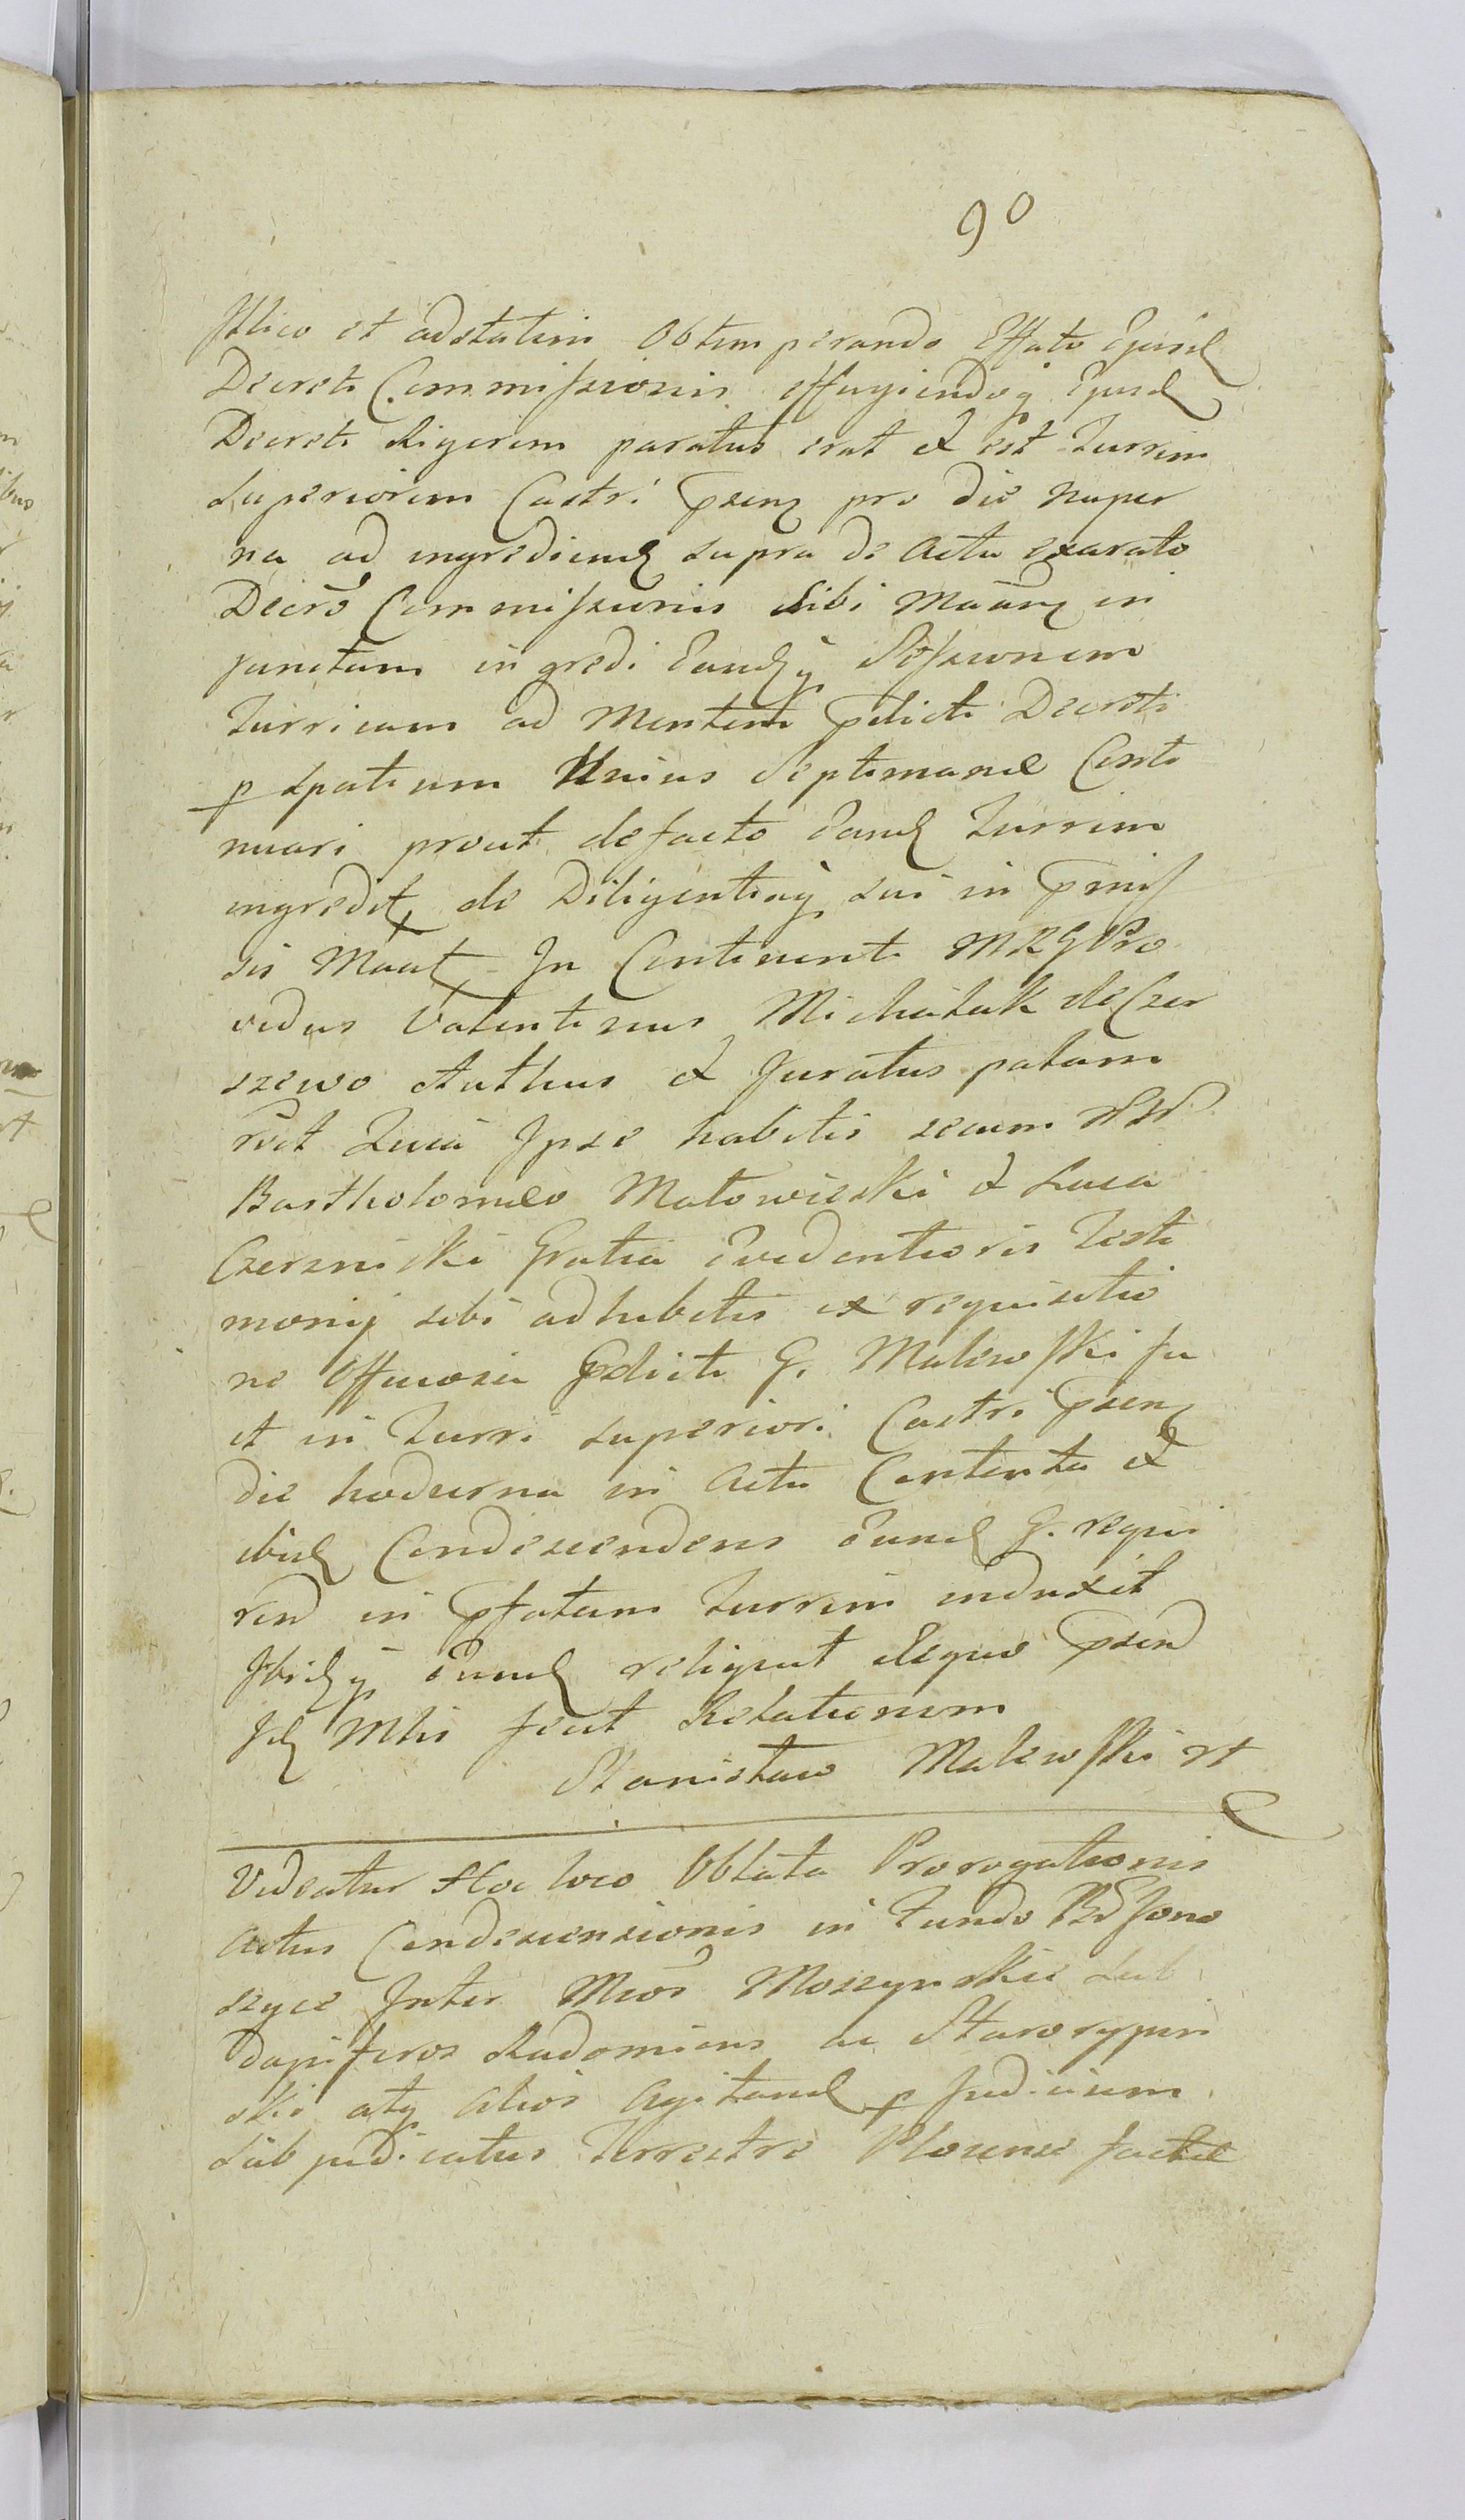 90
Illico et adstatim Obtemperando Effato Ejusd
Decreti Commissionis effugiendoq Ejusd
Decreti Rigorem paratus erat et est Turrim
Superiorem Castri Psenq pro die nuper
na ad ingrediend supra de Actu exarato
Decro Commissionis Sibi Maanq in
junctam ingredi Eandq Sessionem
Turricam ad Mentem Pdicti Decreti
p spatium Unius Septimanæ Conti
nuari prout defacto Eand Turrim
ingredit, de Diligentiaq sui in Pmis
sis Maat In Continenti MRG Pro
vidus Valentinus Michalak de Czer
szewo Authus et Juratus palam
rvt Quia Ipse habitis secum NN
Bartholomæo Matowieski et Luca
Czerznicki Gratia Evidentioris Testi
monij sibi adhibitis ex requisitio
ne Officiosa Pdicti G. Malewski fu
it in Turri superiori Castri Psenq
die hodierna in Actu Contenta et
ibid Condescendens Eund G. requi
ren in Pfatam Turrim induxit
Ibidq Eund reliquit deque Psen
Jd Mtis fecit Relationem
Stanisław Malewski rt
Videatur Hoc loco Oblata Prorogationis
Actus Condescensionis in Fundo Bd Jono
szyce Inter Mcos Moszynskie Sub
dapiferos Radomiens ac Starorypin
ski atq alios Agitand p Judicium
Subjudicatus Terrestre Plocense factæ